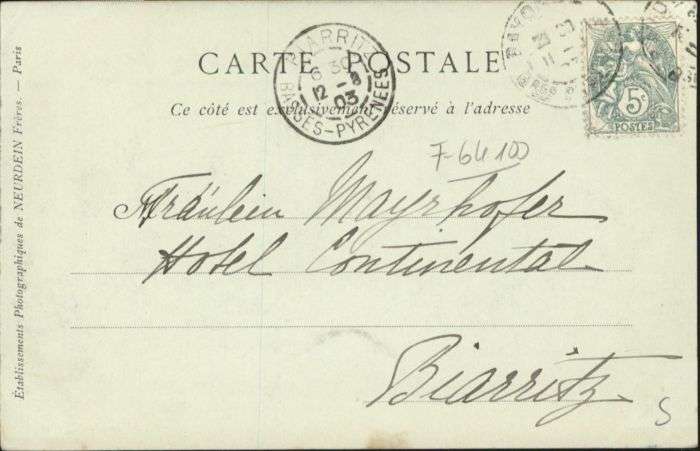 CARTE POSTALE
Ce côté est exclusivement réservé à l'adresse
BIARRITZ
12 -8
03
BSSES-PYRENEES
5c
POSTES
F-64100
Fräulein Mayrhofer
Hotel Continental
Biarritz
S
Établissements Photographiques de NEURDEIN Frères. — Paris